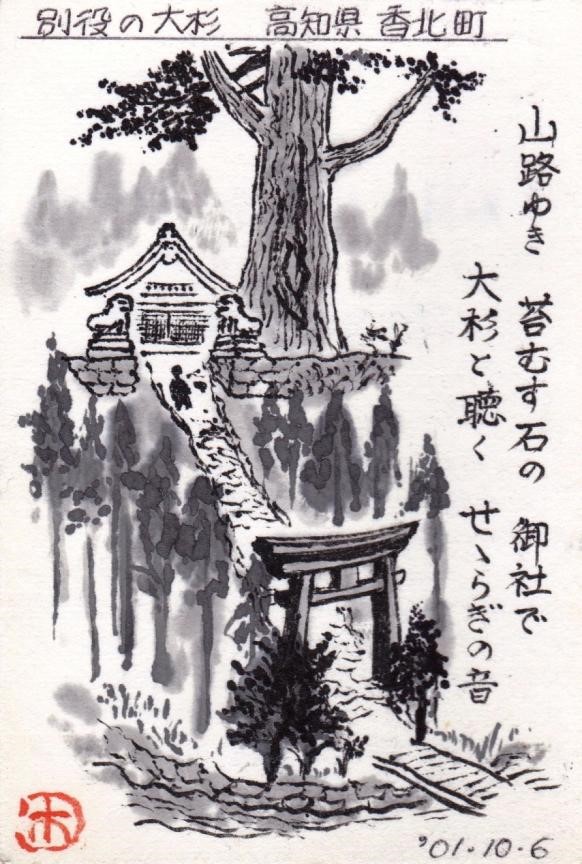 別役の大杉 高知県 香北町
山路ゆき 苔むす石の 御社で
大杉と聴く せゝらぎの音
'01.10.6